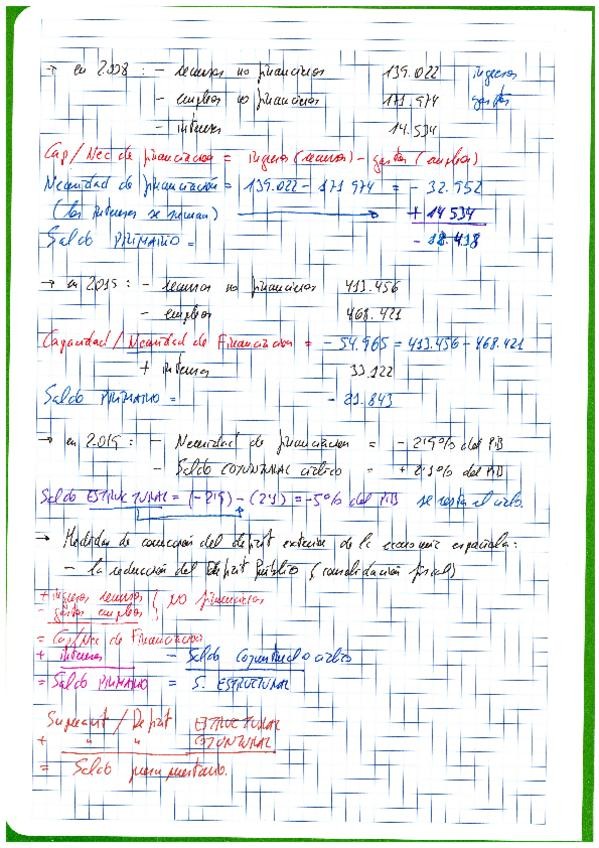 → en 2.008 : - recursos no financieros 139.022 ingresos
- empleos no financieros 171.974 gastos
- intereses 14.534
Cap/Nec de financiación = ingresos (recursos) - gastos (empleos)
Necesidad de financiación = 139.022 - 171 974 = - 32.952
(los intereses se suman) → + 14 534
Saldo PRIMARIO = - 18.418
→ en 2.015 : - recursos no financieros 413.456
- empleos 468.421
Capacidad / Necesidad de Financiación = - 54.965 = 413.456 - 468.421
+ intereses 33.122
Saldo PRIMARIO = - 21.843
→ en 2.019 : - Necesidad de financiación = - 2,9% del PIB
- Saldo COYUNTURAL cíclico = + 2,1% del PIB
Saldo ESTRUCTURAL = (-2,9) - (2,1) = -5% del PIB se resta el ciclo.
→ Medidas de corrección del déficit exterior de la economía española:
- la reducción del Déficit Público (consolidación fiscal)
+ ingresos recursos } no financieros
- gastos empleos
= Cap/Nec de Financiación
+ intereses - Saldo Coyuntural o cíclico
= Saldo PRIMARIO = S. ESTRUCTURAL
Superavit / Déficit ESTRUCTURAL
+ " " COYUNTURAL
= Saldo presupuestario.